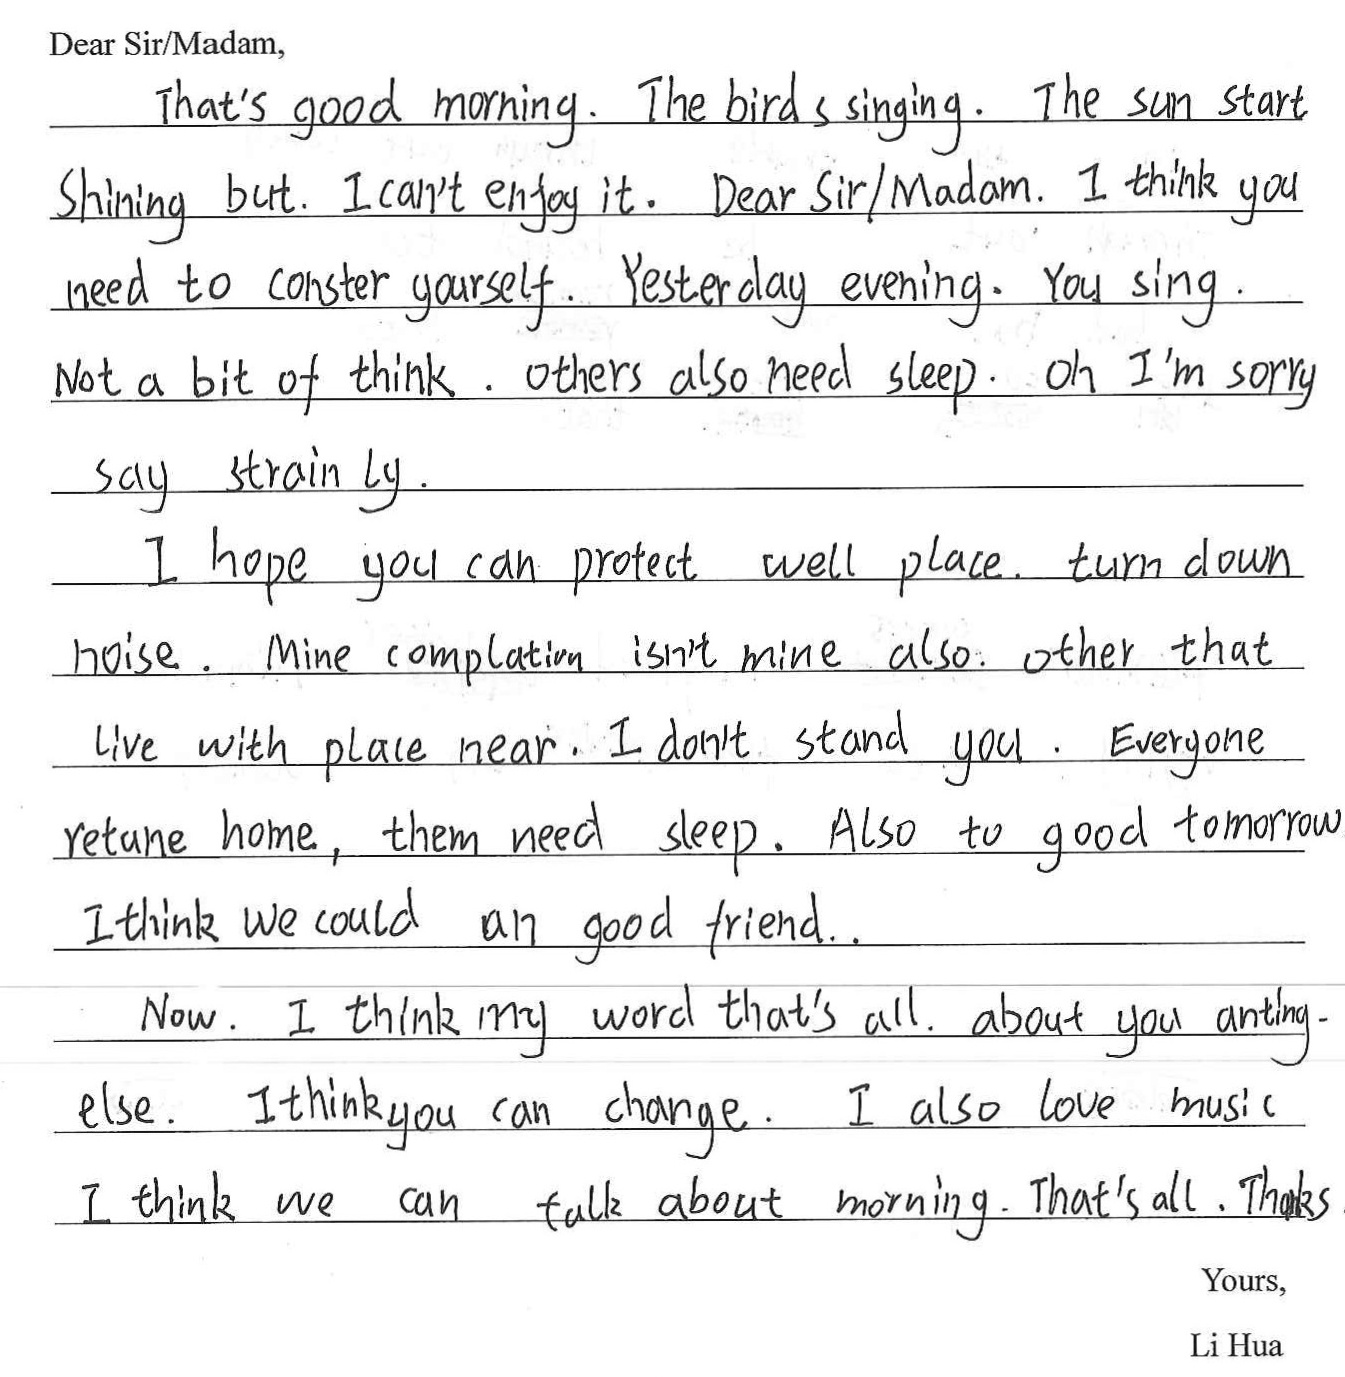 Dear Sir/Madam,
That's good morning. The birds singing. The sun start
Shining but. I can't enjoy it. Dear Sir/Madam. I think you
need to conster yourself. Yesterday evening. You sing.
Not a bit of think. others also need sleep. Oh I'm sorry
say strainly.
I hope you can protect well place. turn down
noise. Mine complation isn't mine also. other that
live with place near. I don't stand you. Everyone
retune home, them need sleep. Also to good tomorrow
I think we could an good friend..
Now. I think my word that's all. about you anting-
else. I think you can change. I also love music
I think we can talk about morning. That's all. Thanks.
Yours,
Li Hua